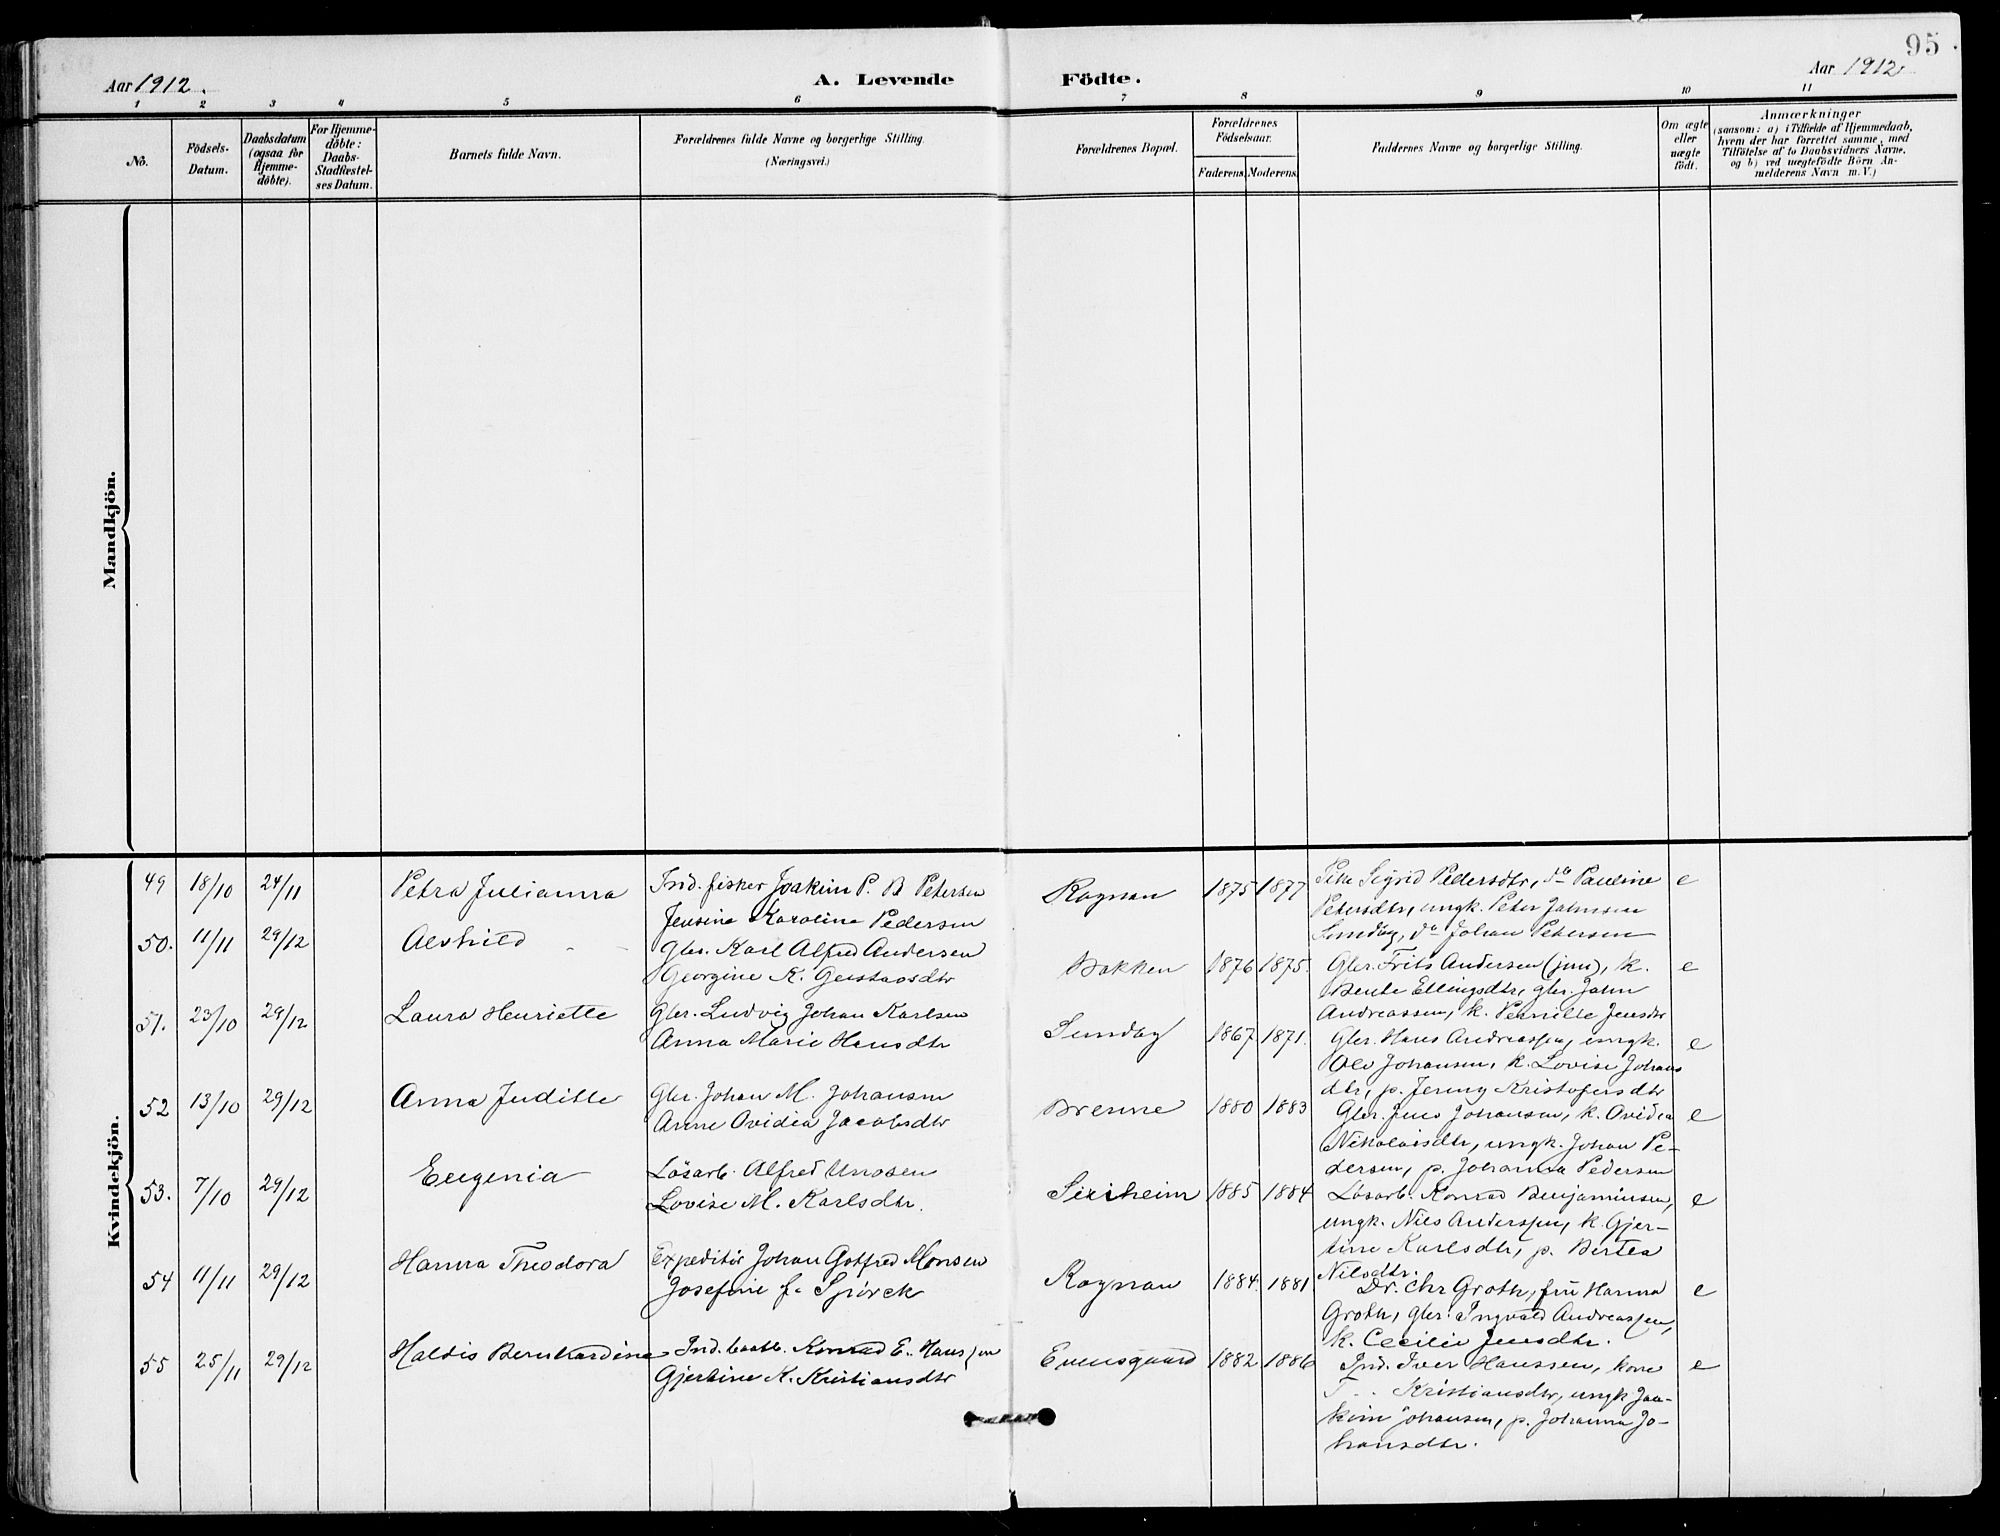 95
Aar 1912.
A. Levende Födte.
Aar 1912
1 2 3 4 5 6 7 8 9 10 11
No.
Födsels-
Datum.
Daabsdatum
(ogsaa for
Hjemme-
døbte).
For Hjemme-
døbte:
Daabs-
Stadfæstel-
ses Datum.
Barnets fulde Navn.
Forældrenes fulde Navne og borgerlige Stilling.
(Næringsvei.)
Forældrenes Bopæl.
Forældrenes
Födselsaar.
Faderens. Moderens.
Faddernes Navne og borgerlige Stilling.
Om ægte
eller
uægte
födt.
Anmærkninger
(saasom: a) i Tilfælde af Hjemmedaab,
hvem der har forrettet samme, med
Tilföielse af to Daabsvidners Navne,
og b) ved uægtefödte Börn An-
melderens Navn m. V.)
Mandkjön.
Kvindekjön.
49 18/10 24/11 Petra Julianna
Ind. fisker Joakim P. B Petersen
Jensine Karoline Pedersen
Rognan 1875 1877
Sigrid Pedersdtr, do Pauline
Petersdtr, ungk. Peter Jahnsen
Sundby, do Johan Petersen
e
50. 11/11 29/12 Alvhild
Gbr. Karl Alfred Andersen
Georgine K. Gustavsdtr
Bakken 1876 1875.
Gbr. Frits Andersen (jun), k.
Bente Ellingsdtr, gbr. Jahn
Andreassen, k. Pernille Jensdtr
e
51. 23/10 29/12 Laura Henriette
Gbr. Ludvig Johan Karlsen
Anna Marie Hansdtr
Sundby 1867 1871.
Gbr. Hans Andreassen, ungk.
Ole Johansen, k. Lovise Johans
dtr, p. Jenny Kristofersdtr
e
52 13/10 29/12 Anna Judithe
Gbr. Johan M. Johansen
Anne Ovidia Jacobsdtr
Brenne 1880 1883
Gbr. Jens Johansen, k. Ovidia
Nikolaisdtr, ungk. Johan Pe-
dersen, p. Johanna Pedersen
e
53. 7/10 29/12 Eugenia
Løsarb. Alfred Unosen
Lovise M. Karlsdtr.
1885 1884
Løsarb. Konrad Benjaminsen,
ungk. Nils Anderssen, k. Gjer-
tine Karlsdtr, p. Bertea
Nilsdtr.
e
54 11/11 29/12 Hanna Theodora
Expeditör Johan Gotfred Monsen
Josefine f. Spörck
Rognan 1884 1881
Dr. Chr Groth, fru Hanna
Groth, gbr. Ingvald Andreassen,
k. Cecilie Jensdtr.
e
55 25/11 29/12 Haldis Bernhardine
Ind. baatb. Konrad E. Hanssen
Gjertine K. Kristiansdtr
Evensgaard 1882 1886
Ind. Iver Hanssen, kone
T. . Kristiansdtr, ungk Joa-
kim Johansen, p. Johanna Jo-
hansdtr.
e